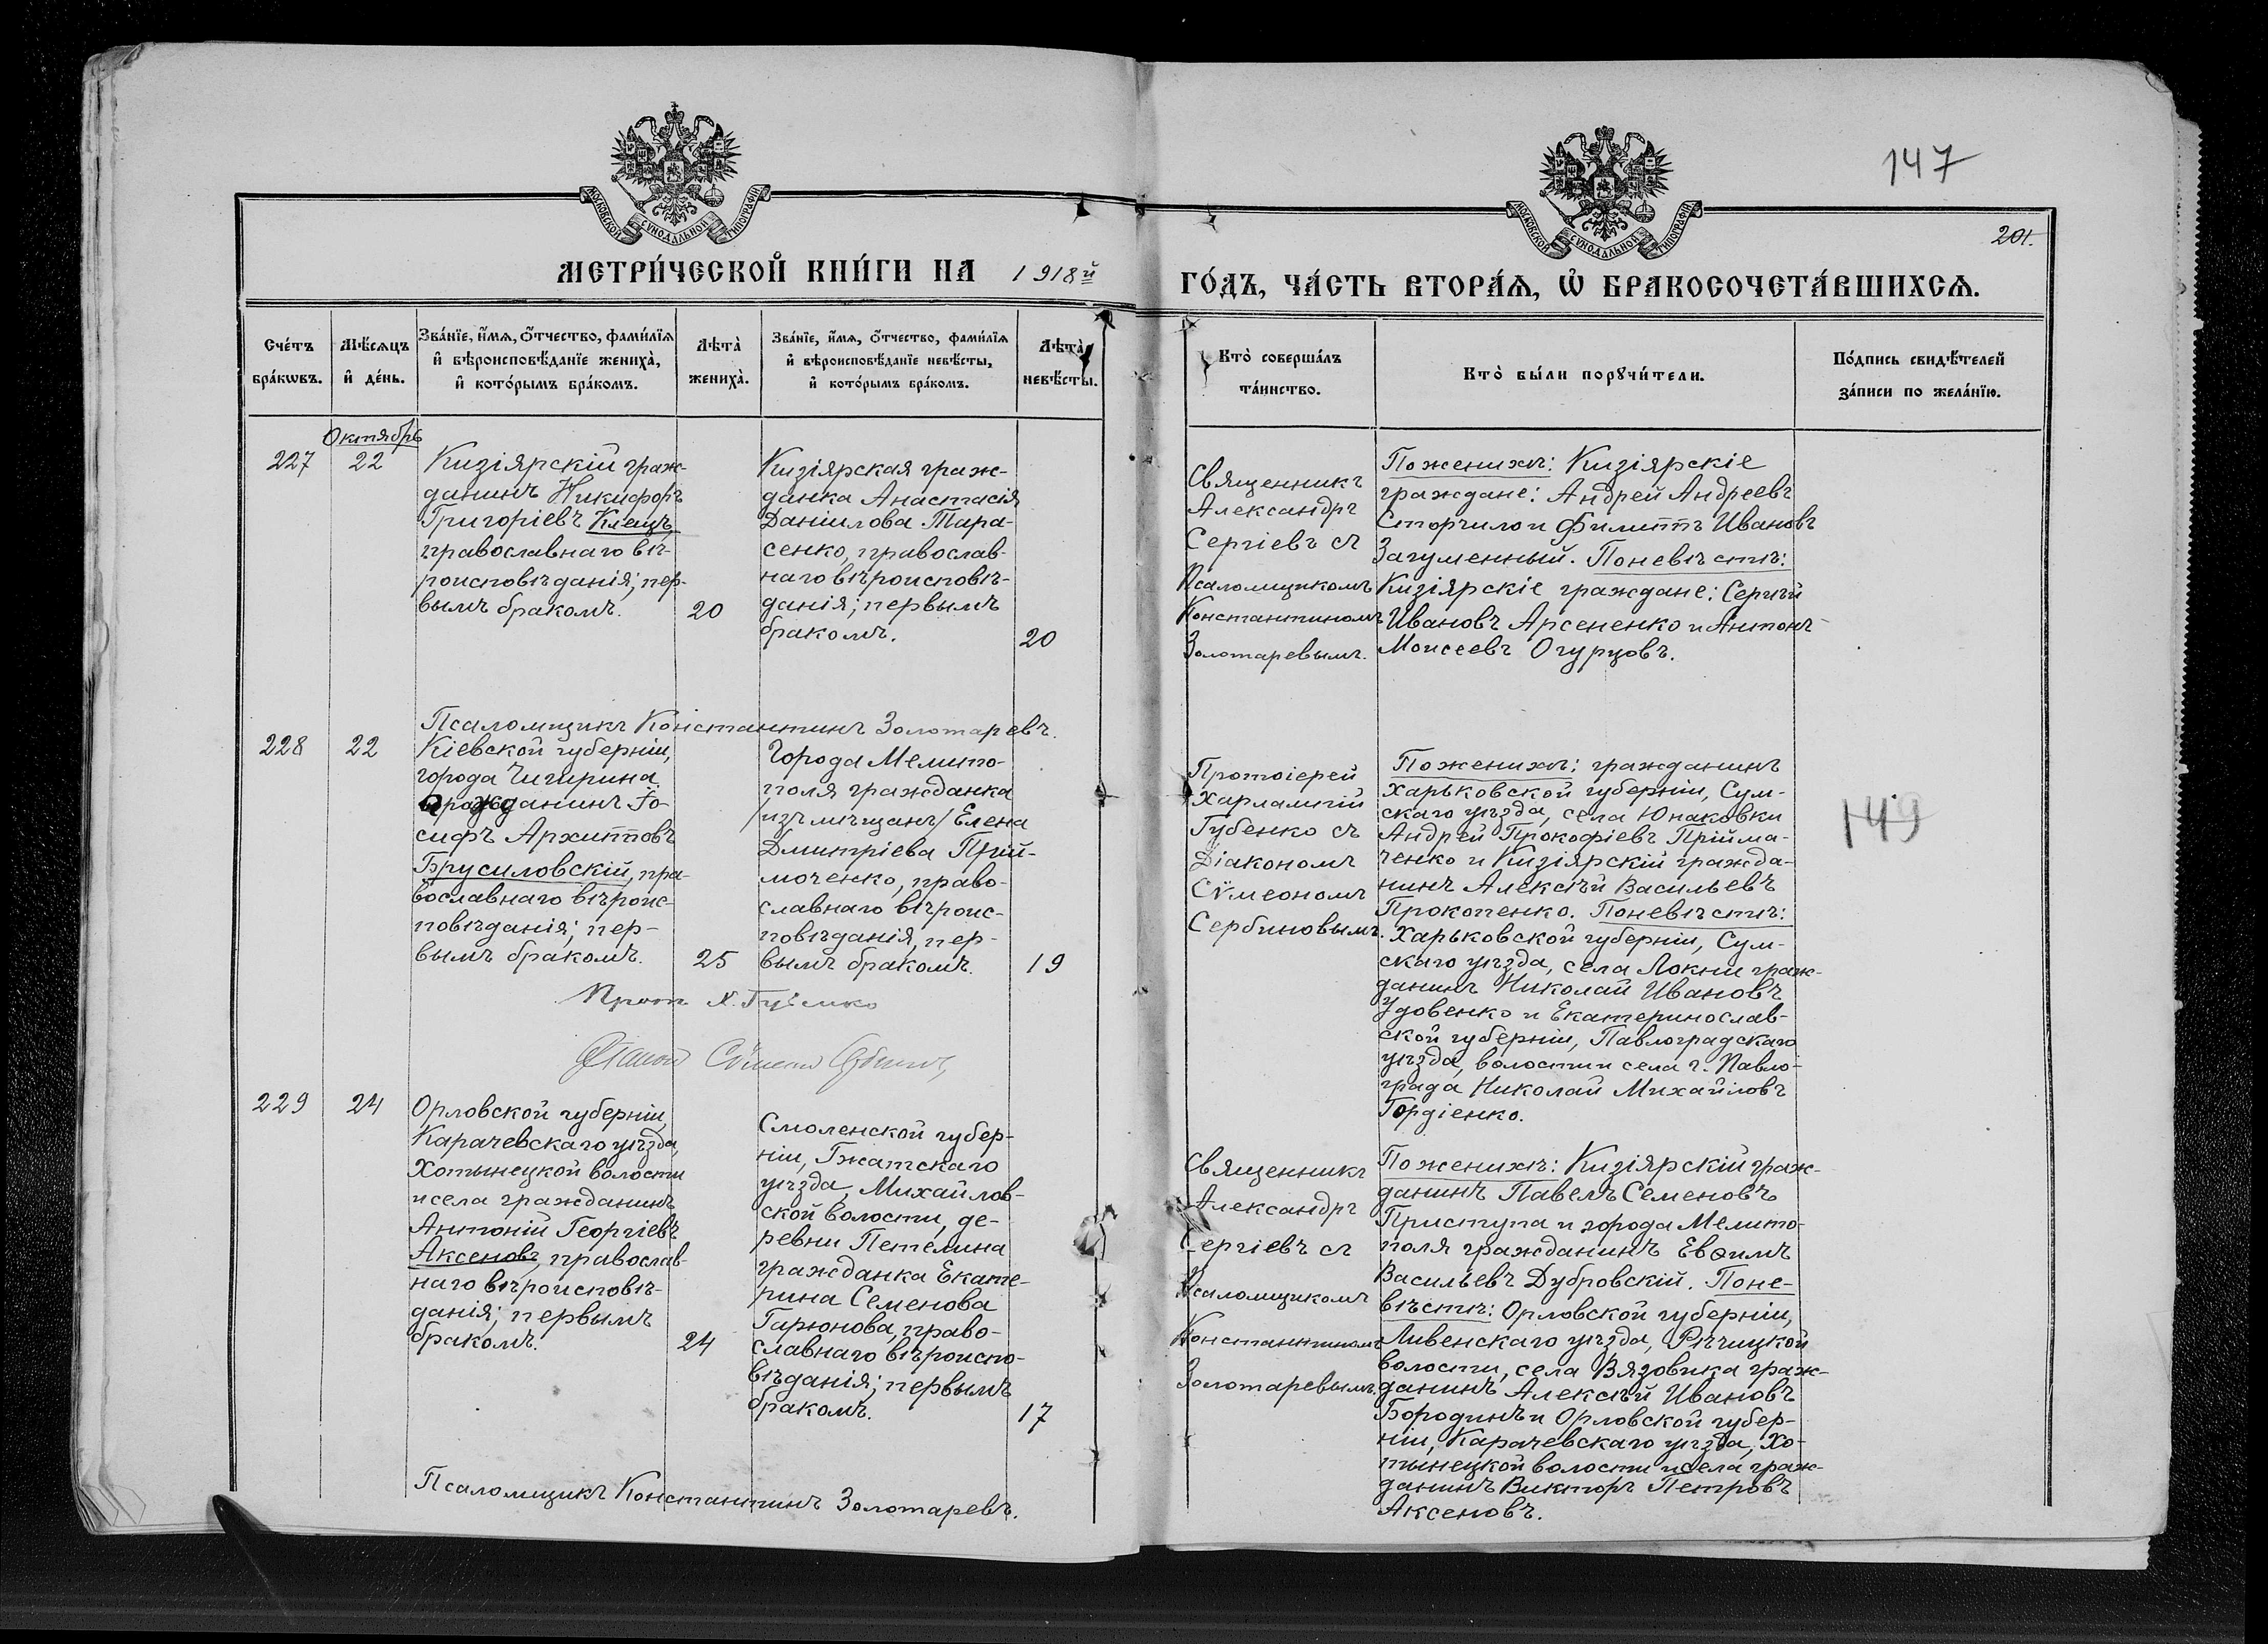 147
201.
МОСКОВСКОЙ СѴНОДАЛЬНОЙ ТИПОГРАФІИ
МОСКОВСКОЙ СѴНОДАЛЬНОЙ ТИПОГРАФІИ
МЕТРИ́ЧЕСКОЙ КНИ́ГИ НА 1918й
ГО́ДЪ, ЧА́СТЬ ВТОРА́Ѧ, Ѽ БРАКОСОЧЕТА́ВШИХСѦ.
Сче́тъ
бра́кѡвъ.
Мѣ́сѧцъ
и҆ де́нь.
Зва́нїе, и҆́мѧ, ѻ҆́тчество, фами́лїѧ
и҆ вѣроисповѣ́данїе жениха̀,
и҆ кото́рымъ бра́комъ.
Лѣта̀
жениха̀.
Зва́нїе, и҆́мѧ, ѻ҆́тчество, фами́лїѧ
и҆ вѣроисповѣ́данїе невѣ́сты,
и҆ кото́рымъ бра́комъ.
Лѣта̀
невѣ́сты.
Кто̀ соверша́лъ
та́инство.
Кто̀ бы́ли порꙋчи́тели.
По́дпись свидѣ́телей
за́писи по жела́нїю.
Октябрь
227
22
Кизіярскій граж-
данинъ Никифоръ
Григоріевъ Клецъ,
православнаго вѣ-
роисповѣданія; пер-
вымъ бракомъ.
20
Кизіярская граж-
данка Анастасія
Даніилова Тара-
сенко, православ-
наго вѣроисповѣ-
данія; первымъ
бракомъ.
20
Священникъ
Александръ
Сергіевъ съ
Псаломщикомъ
Константиномъ
Золотаревымъ.
По женихѣ: Кизіярскіе
граждане: Андрей Андреевъ
Сторчило и Филиппъ Ивановъ
Загуменный. По невѣстѣ:
Кизіярскіе граждане: Сергѣй
Ивановъ Арсененко и Антонъ
Моисеевъ Огурцовъ.
Псаломщикъ Константинъ Золотаревъ.
228
22
Кіевской губерніи,
города Чигирина
гражданинъ Іо-
сифъ Архипповъ
Брусиловскій, пра-
вославнаго вѣроис-
повѣданія; пер-
вымъ бракомъ.
25
Города Мелито-
поля гражданка
/изъ мѣщанъ/ Елена
Дмитріева Прій-
моченко, право-
славнаго вѣроис-
повѣданія, пер-
вымъ бракомъ.
19
Протоіерей
Харлампій
Губенко съ
Діакономъ
Сѵмеономъ
Сербиновымъ.
По женихѣ: гражданинъ
Харьковской губерніи, Сум-
скаго уѣзда, села Юнаковки
Андрей Прокофіевъ Прійма-
ченко и Кизіярскій гражда-
нинъ Алексѣй Васильевъ
Прокопенко. По невѣстѣ:
Харьковской губерніи, Сум-
скаго уѣзда, села Локни граж-
данинъ Николай Ивановъ
Удовенко и Екатеринослав-
ской губерніи, Павлоградскаго
уѣзда, волости и села г. Павло-
града Николай Михайловъ
Гордіенко.
149
Прот. Х. Губенко
229
24
Орловской губерніи,
Карачевскаго уѣзда,
Хотынецкой волости
и села гражданинъ
Антоній Георгіевъ
Аксеновъ, православ-
наго вѣроисповѣ-
данія; первымъ
бракомъ.
24
Смоленской губер-
ніи, Гжатскаго
уѣзда, Михайлов-
ской волости, де-
ревни Петелина
гражданка Екате-
рина Семенова
Гарюнова, право-
славнаго вѣроиспо-
вѣданія; первымъ
бракомъ.
17
Священникъ
Александръ
Сергіевъ съ
Псаломщикомъ
Константиномъ
Золотаревымъ.
По женихѣ: Кизіярскій граж-
данинъ Павелъ Семеновъ
Приступа и города Мелито-
поля гражданинъ Евѳимъ
Васильевъ Дубровскій. По не-
вѣстѣ: Орловской губерніи,
Ливенскаго уѣзда, Рѣчицкой
волости, села Вязовика граж-
данинъ Алексѣй Ивановъ
Бородинъ и Орловской губер-
ніи, Карачевскаго уѣзда, Хо-
тынецкой волости и села граж-
данинъ Викторъ Петровъ
Аксеновъ.
Псаломщикъ Константинъ Золотаревъ.